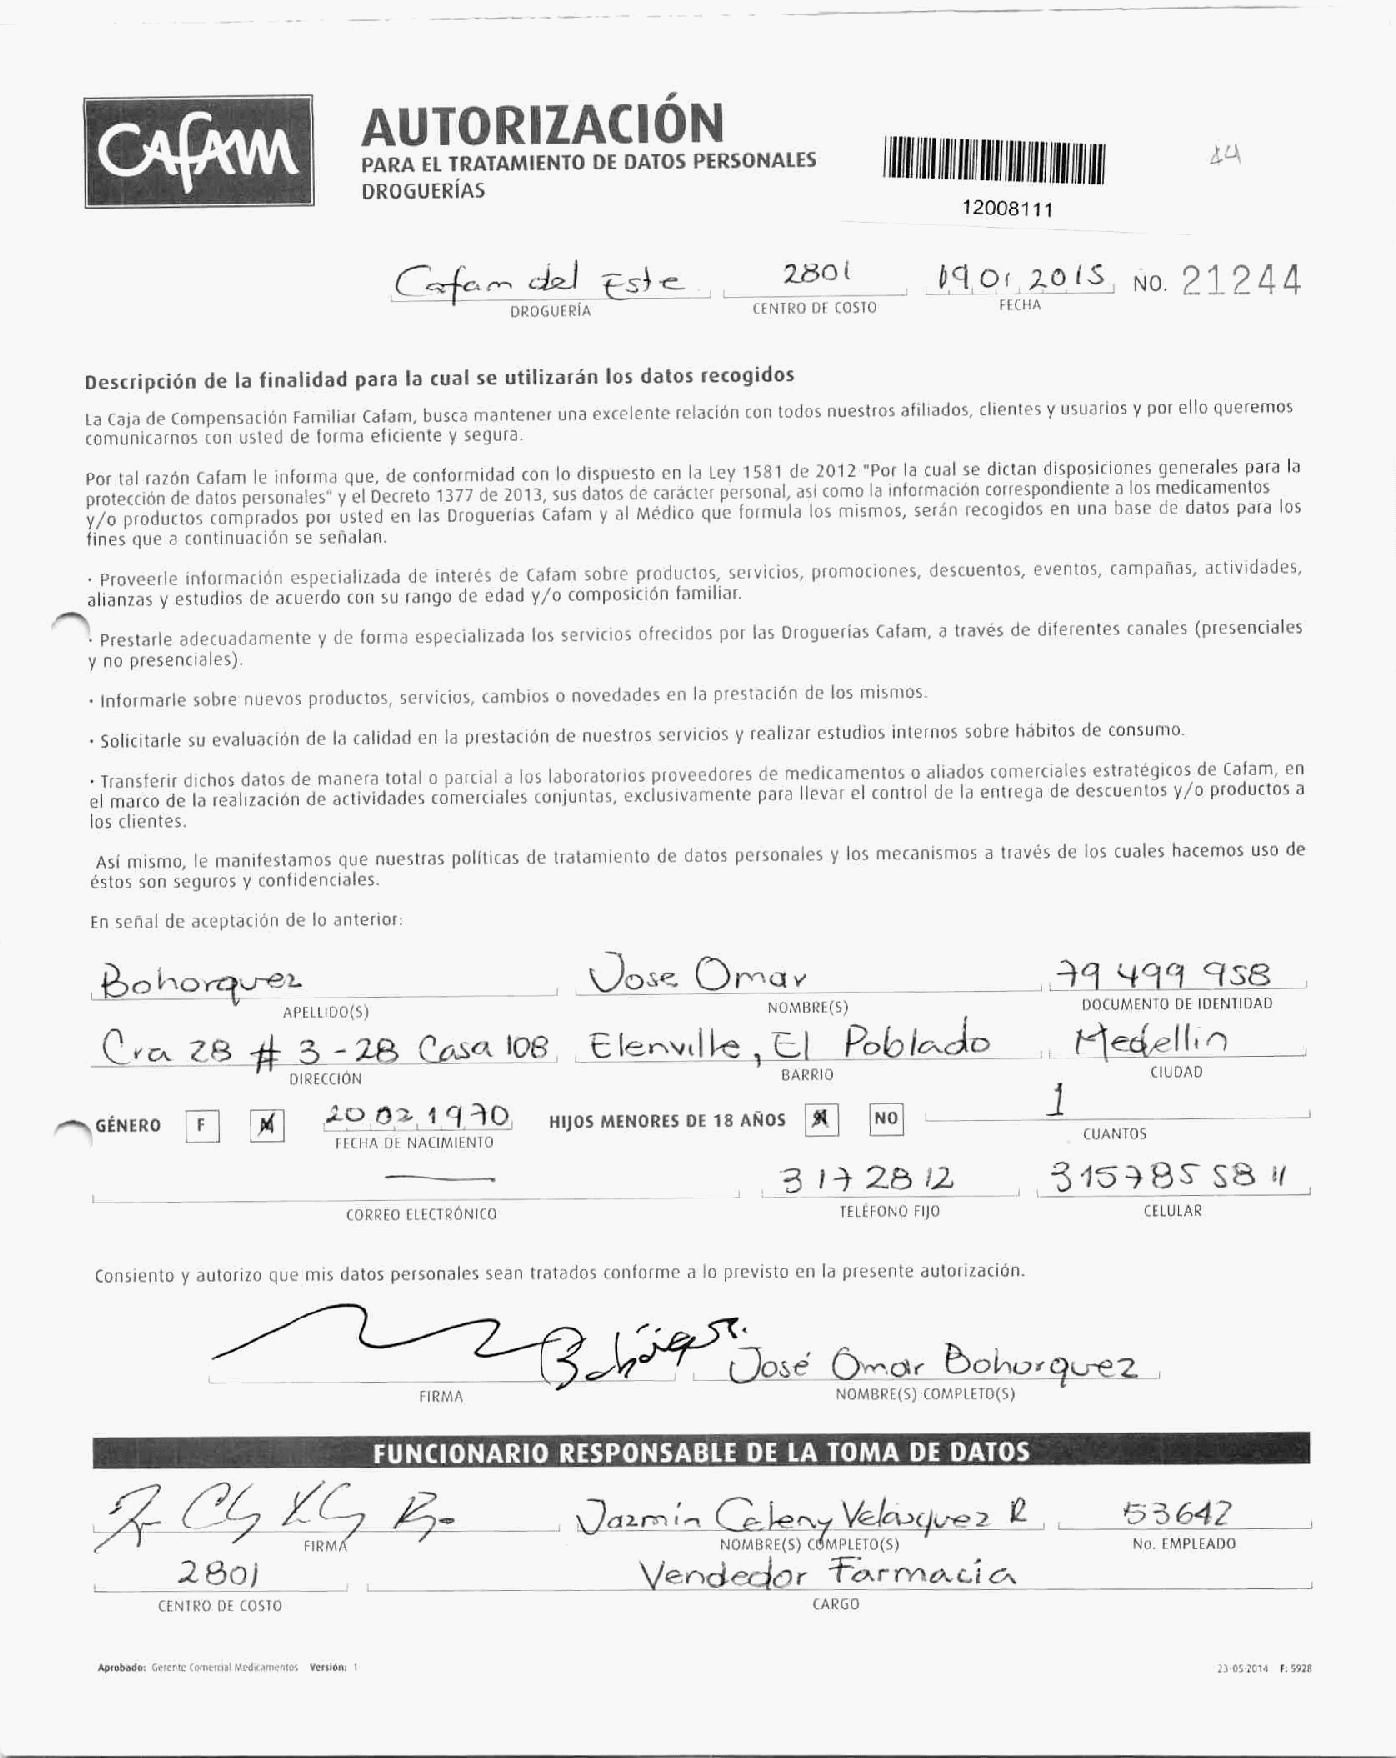 CAFAM
AUTORIZACIÓN
PARA EL TRATAMIENTO DE DATOS PERSONALES
DROGUERÍAS
12008111
Cafam del Este 2801 19 01 2015 NO. 21244
DROGUERÍA CENTRO DE COSTO FECHA
Descripción de la finalidad para la cual se utilizarán los datos recogidos
La Caja de Compensación Familiar Cafam, busca mantener una excelente relación con todos nuestros afiliados, clientes y usuarios y por ello queremos
comunicarnos con usted de forma eficiente y segura.
Por tal razón Cafam le informa que, de conformidad con lo dispuesto en la Ley 1581 de 2012 "Por la cual se dictan disposiciones generales para la
protección de datos personales" y el Decreto 1377 de 2013, sus datos de carácter personal, así como la información correspondiente a los medicamentos
y/o productos comprados por usted en las Droguerías Cafam y al Médico que formula los mismos, serán recogidos en una base de datos para los
fines que a continuación se señalan.
· Proveerle información especializada de interés de Cafam sobre productos, servicios, promociones, descuentos, eventos, campañas, actividades,
alianzas y estudios de acuerdo con su rango de edad y/o composición familiar.
· Prestarle adecuadamente y de forma especializada los servicios ofrecidos por las Droguerías Cafam, a través de diferentes canales (presenciales
y no presenciales).
· Informarle sobre nuevos productos, servicios, cambios o novedades en la prestación de los mismos.
· Solicitarle su evaluación de la calidad en la prestación de nuestros servicios y realizar estudios internos sobre hábitos de consumo.
· Transferir dichos datos de manera total o parcial a los laboratorios proveedores de medicamentos o aliados comerciales estratégicos de Cafam, en
el marco de la realización de actividades comerciales conjuntas, exclusivamente para llevar el control de la entrega de descuentos y/o productos a
los clientes.
Así mismo, le manifestamos que nuestras políticas de tratamiento de datos personales y los mecanismos a través de los cuales hacemos uso de
éstos son seguros y confidenciales.
En señal de aceptación de lo anterior:
Bohorquez Jose Omar 79 499 958
APELLIDO(S) NOMBRE(S) DOCUMENTO DE IDENTIDAD
Cra 28 # 3-28 Casa 108 Elenville, El Poblado Medellin
DIRECCIÓN BARRIO CIUDAD
GÉNERO F M 20 02 1970 HIJOS MENORES DE 18 AÑOS NO 1
FECHA DE NACIMIENTO CUANTOS
3172812 3157855811
CORREO ELECTRÓNICO TELÉFONO FIJO CELULAR
Consiento y autorizo que mis datos personales sean tratados conforme a lo previsto en la presente autorización.
José Omar Bohorquez
FIRMA NOMBRE(S) COMPLETO(S)
FUNCIONARIO RESPONSABLE DE LA TOMA DE DATOS
Jazmin Celeny Velasquez R 53642
FIRMA NOMBRE(S) COMPLETO(S) No. EMPLEADO
2801 Vendedor Farmacia
CENTRO DE COSTO CARGO
Aprobado: Gerente Comercial Medicamentos Versión: 1 23-05-2014 F: 5928